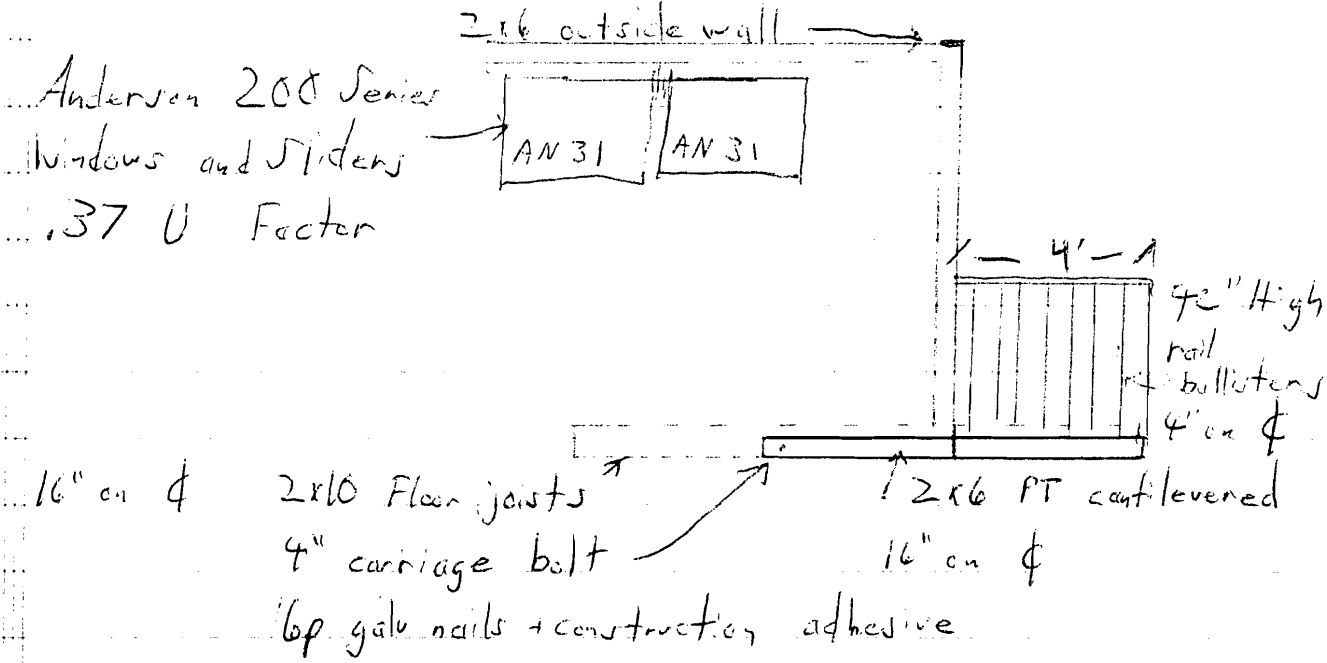 2x6 outside wall
Anderson 200 Series
Windows and Sliders
.37 U Factor
AN 31
AN 31
4'
42" High
rail
ballisters
4" on ₵
16" on ₵ 2x10 Floor joists
2x6 PT cantilevered
4" carriage bolt
16" on ₵
16p galv nails + construction adhesive